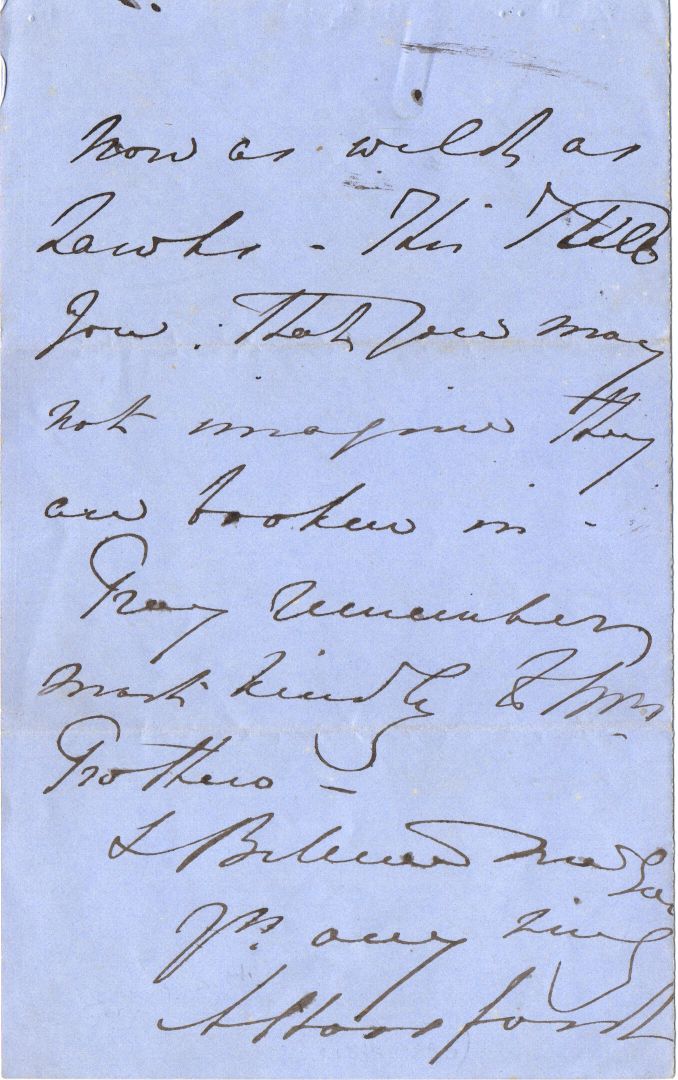 now as wild as
Hawks - This I tell
you. That you may
not imagine they
are broken in -
Pray remember
most kindly to Mrs
Prothero -
& Believe me
Yrs. very
A Hornsford